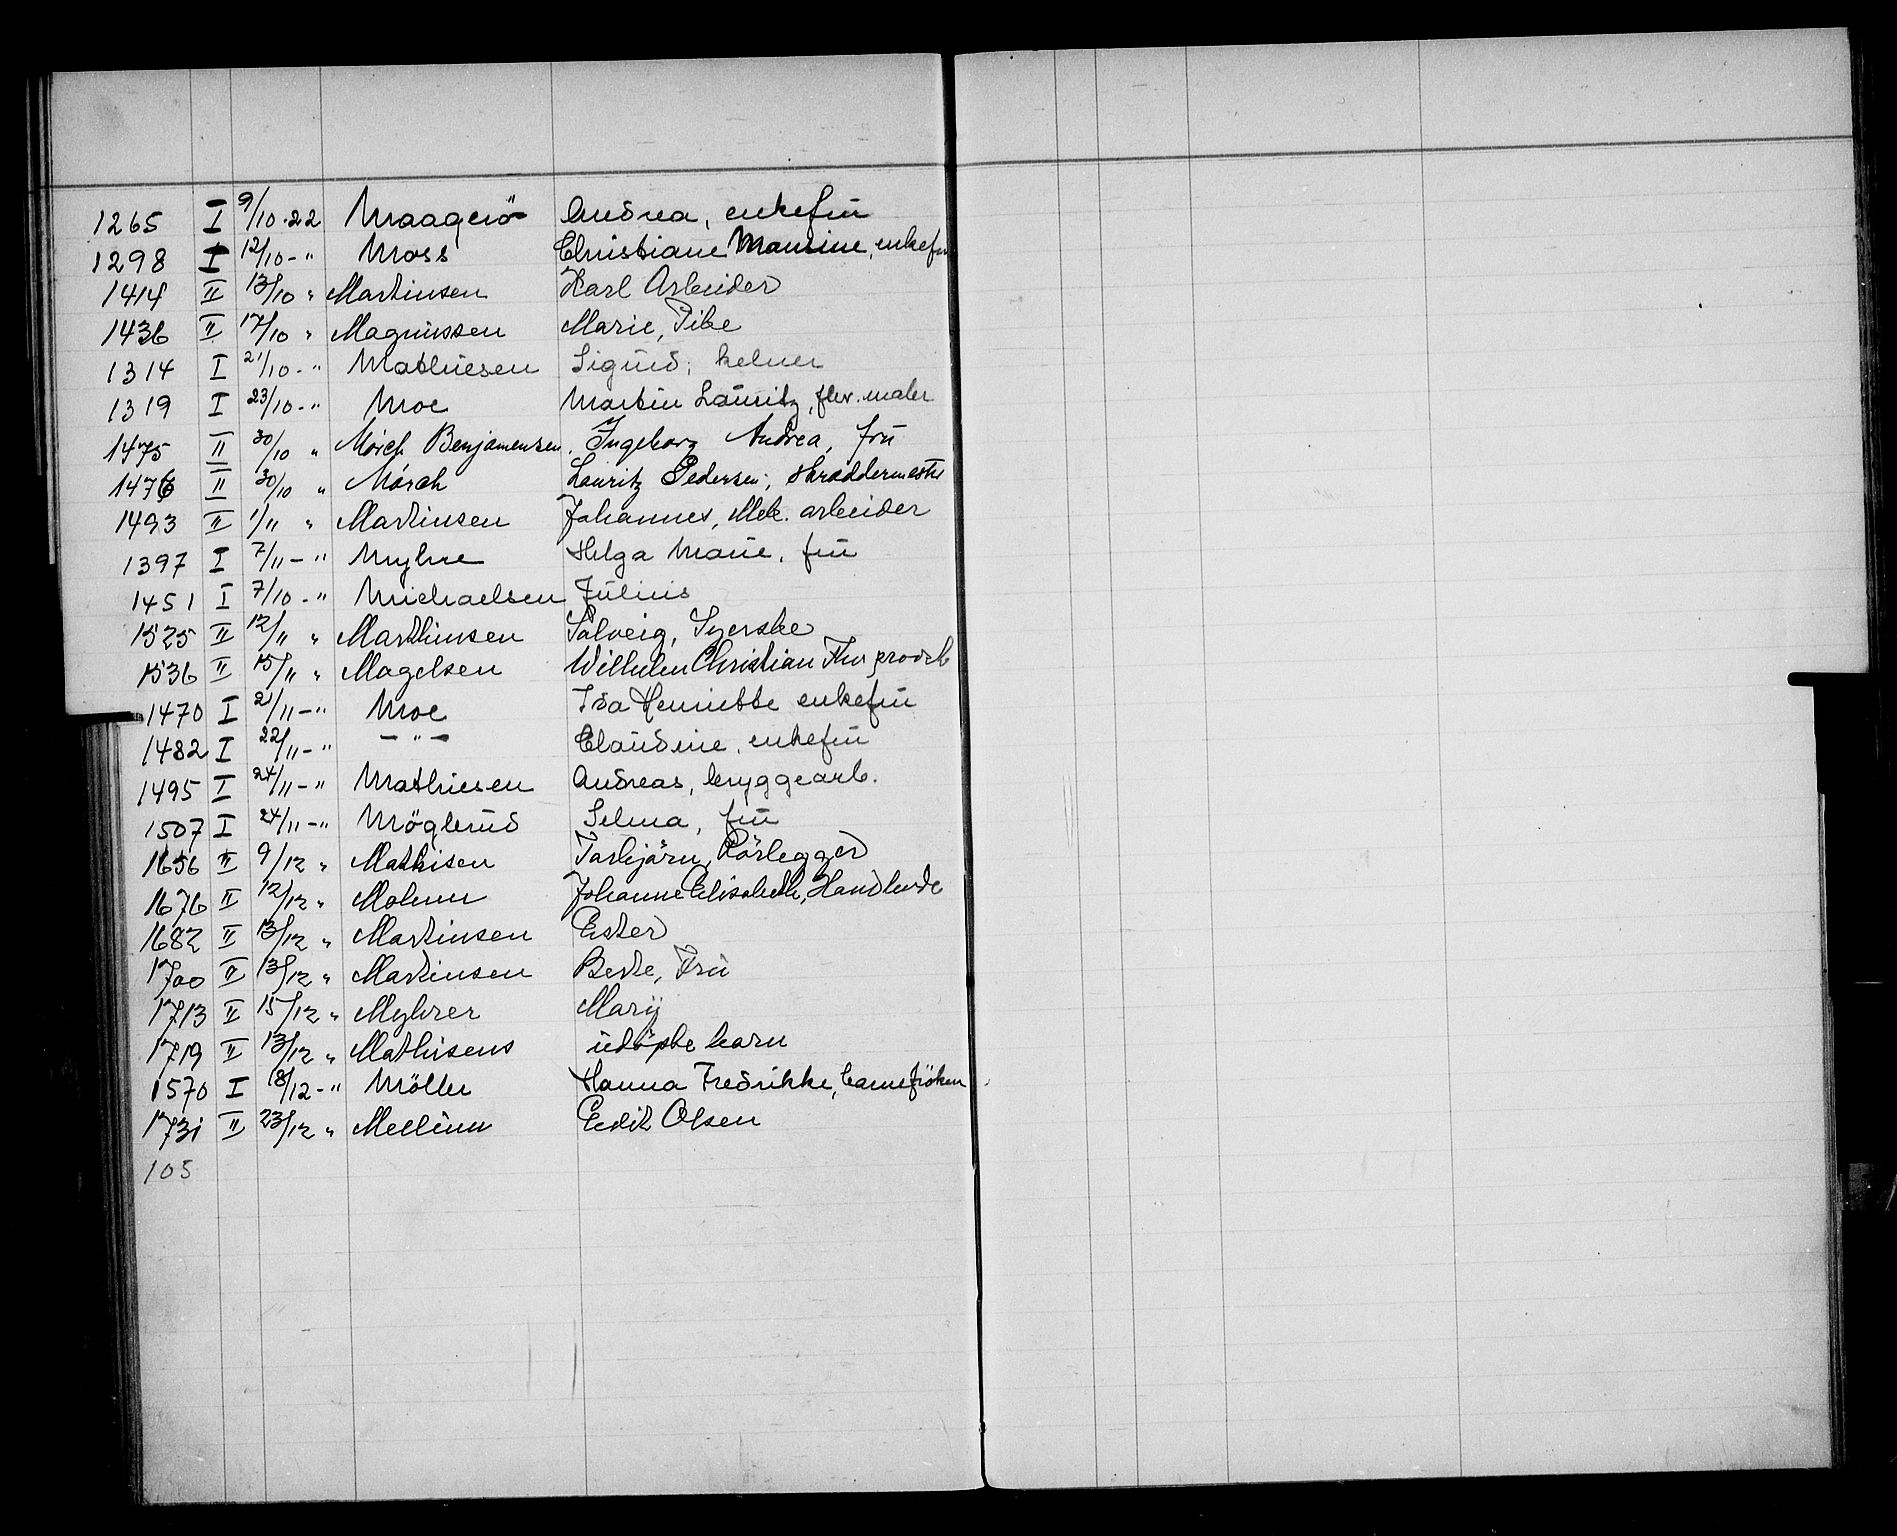 1265 I 9/10-22 Maagerö Andrea, enkefrü
1298 I 12/10-" Moss Christiane Maurine, enkefrü
1414 II 13/10 " Martinsen Karl Arbeider
1436 II 17/10 " Magnussen Marie, Pike
1314 I 21/10-" Mathiesen Sigurd; kelner
1319 I 23/10-" Moe Martin Lauritz, fhv. maler
1475 II 30/10 " Mörch Benjamensen, Ingeborg Andrea, frü
1476 II 30/10 " Mörch Lauritz Pedersen, Skraddermester
1493 II 1/11 " Martinsen Johannes, Mek. arbeider
1397 I 7/11-" Myhre Helga Marie, frü
1451 I 7/10-" Michaelsen Julius
1525 II 12/11 " Marthinsen Solveig, Syerske
1536 II 15/11 " Magelsen Wilhelm Christian Fhv provst
1470 I 21/11-" Moe Ida Henriette enkefrü
1482 I 22/11-" -"- Claudine, enkefrü
1495 I 24/11-" Mathiesen Andreas, bryggearb.
1507 I 24/11-" Möglerud Selma, frü
1656 II 9/12 " Mathisen Torbjörn, Rörlegger
1676 II 12/12 " Molum Johanne Elisabeth, Handlende
1682 II 13/12 " Martinsen Ester
1700 II 13/12 " Martinsen Berte, Frü
1713 II 15/12 " Myhrer Marij
1719 II 13/12 " Mathisens udöpte barn
1570 I 18/12-" Möller Hanna Fredrikke, barnefröken
1731 II 23/12 " Mellum Edit Olsen
105